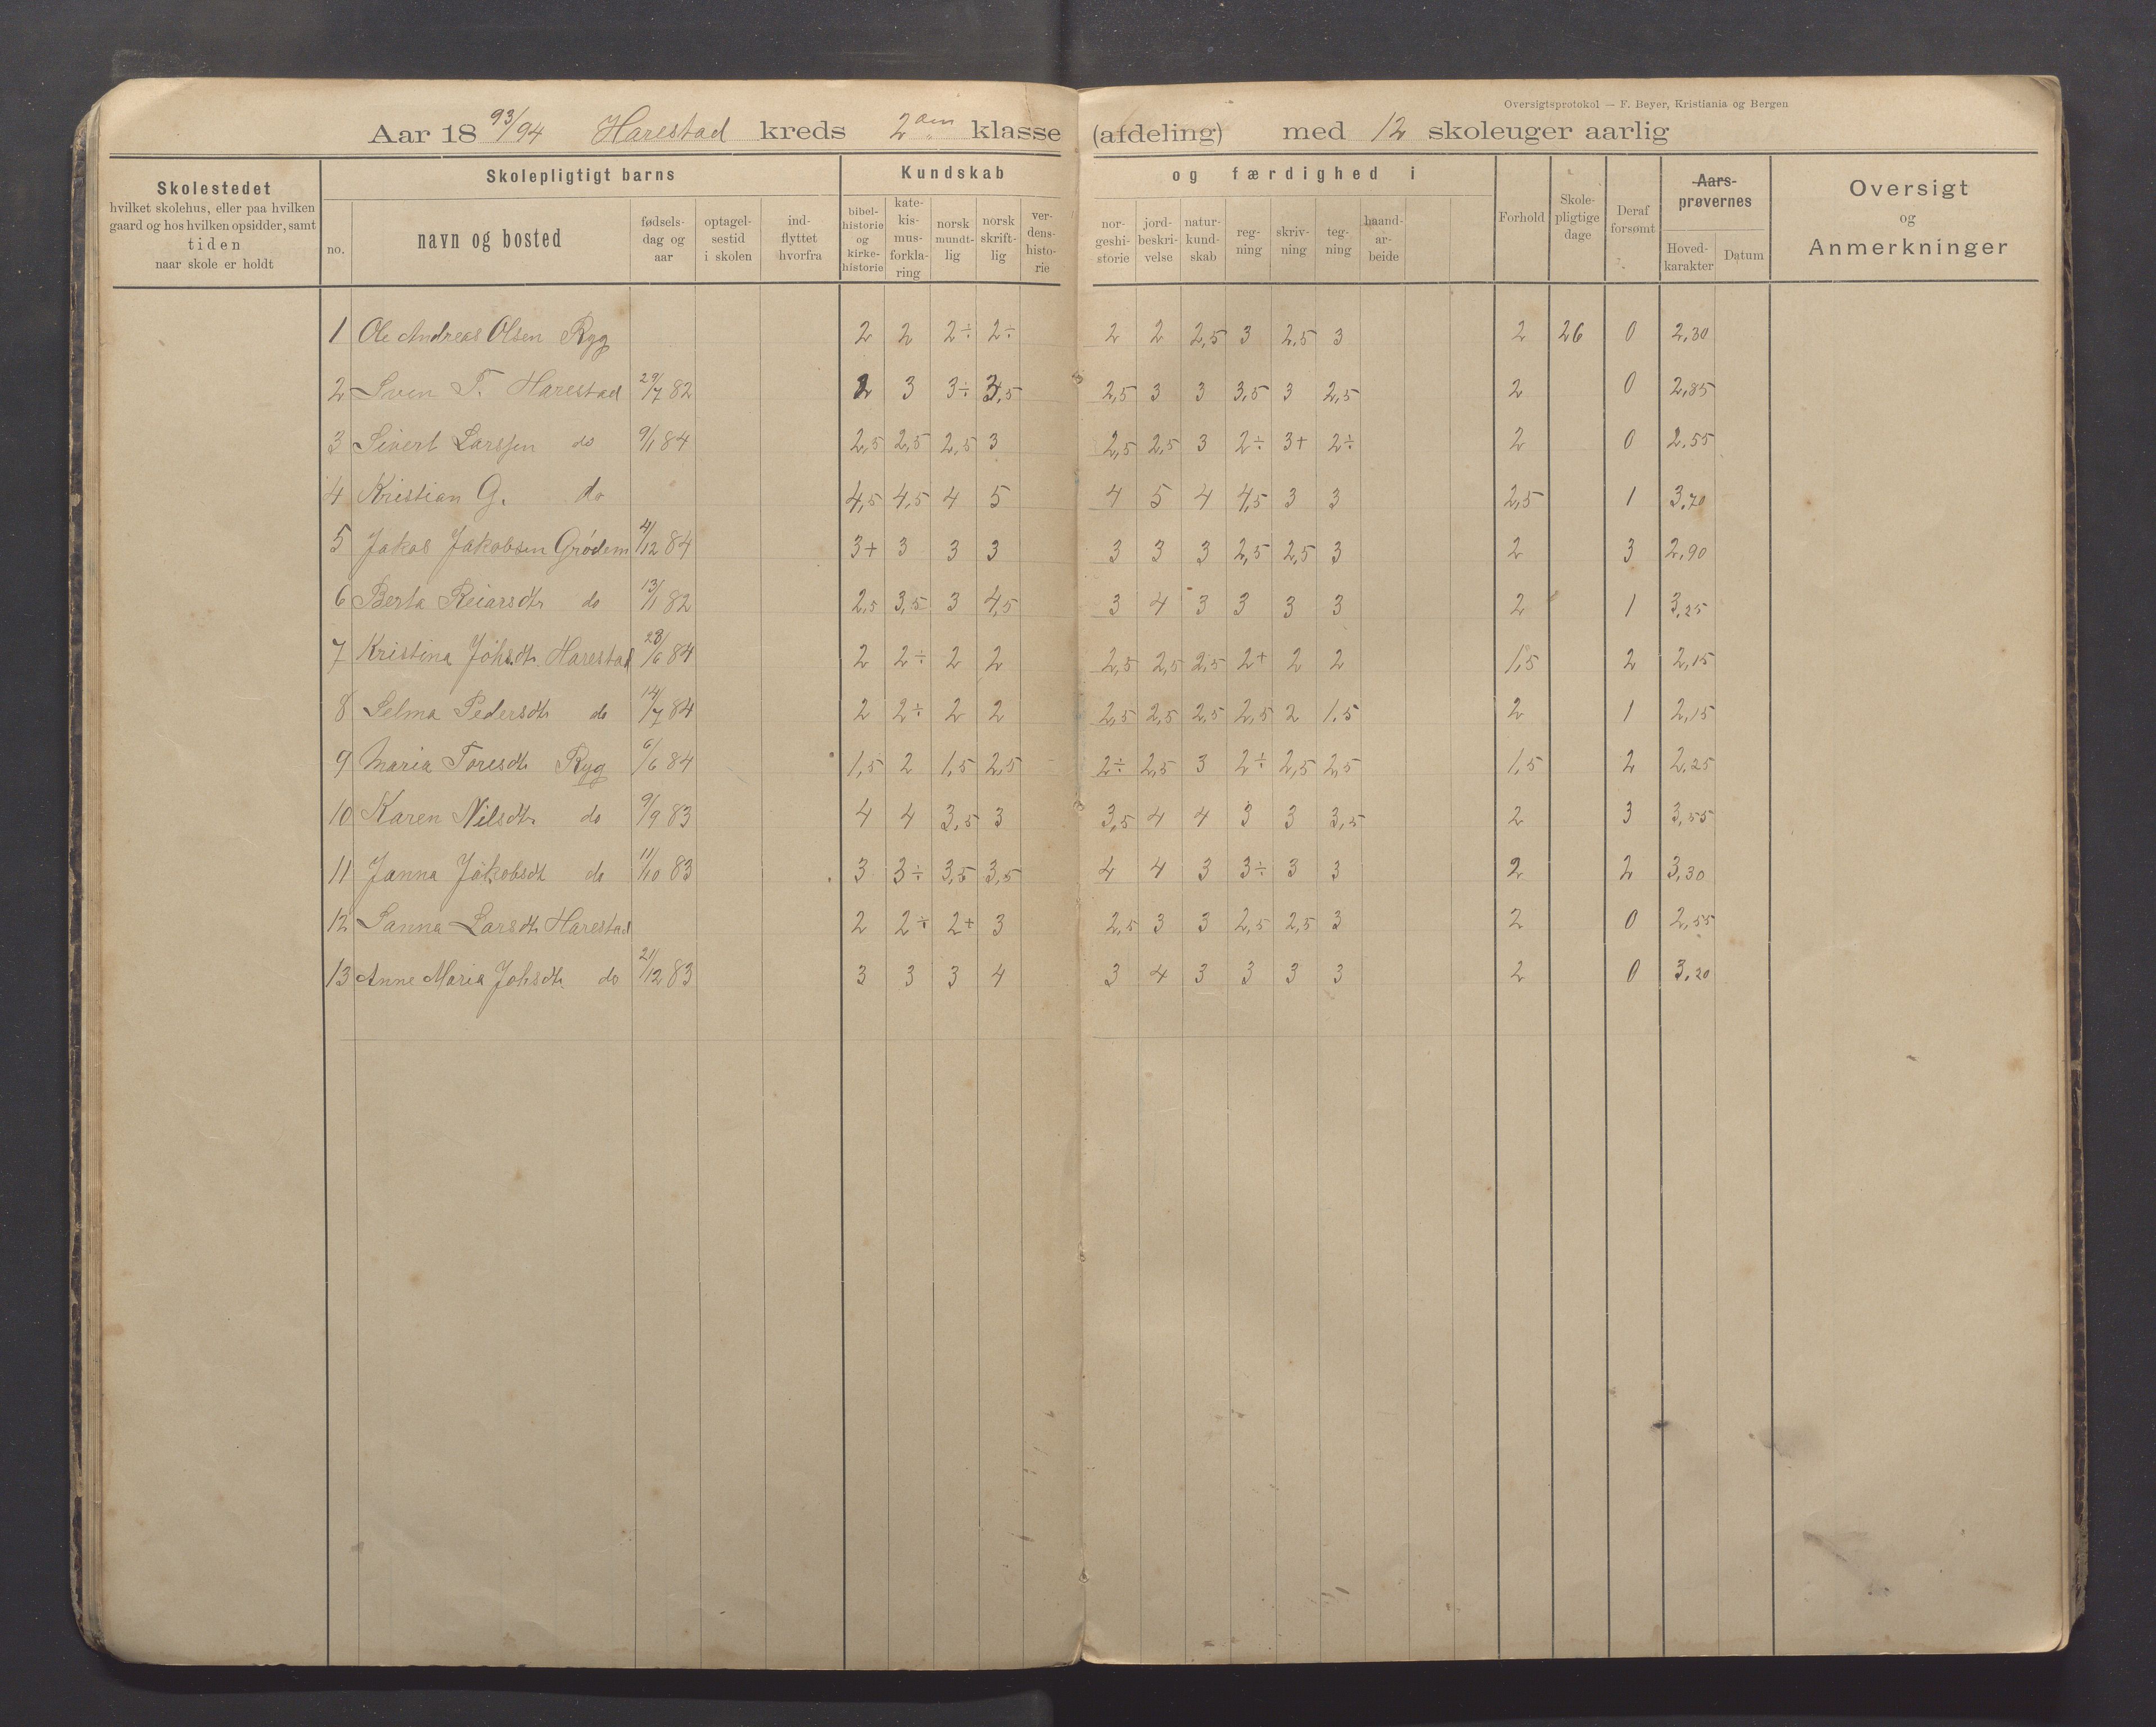 Oversigtsprotokol — F. Beyer, Kristiania og Bergen
Aar 18 93/94 Harestad kreds 2den klasse (afdeling) med 12 skoleuger aarlig
Skolestedet
hvilket skolehus, eller paa hvilken
gaard og hos hvilken opsidder, samt
tiden
naar skole er holdt
Skolepligtigt barns
no.
navn og bosted
fødsels-
dag og
aar
optagel-
sestid
i skolen
ind-
flyttet
hvorfra
Kundskab og færdighed i
bibel-
historie
og
kirke-
historie
kate-
kis-
mus-
forkla-
ring
norsk
mundt-
lig
norsk
skrift-
lig
ver-
dens-
histo-
rie
nor-
geshi-
storie
jord-
beskri-
velse
natur-
kund-
skab
reg-
ning
skriv-
ning
teg-
ning
haand-
ar-
beide
Forhold
Skole-
pligtige
dage
Deraf
forsømt
Aars-
prøvernes
Hoved-
karakter
Datum
Oversigt
og
Anmerkninger
1 Ole Andreas Olsen Ryg 2 2 2÷ 2÷ 2 2 2,5 3 2,5 3 2 26 0 2,30
2 Sven T. Harestad 29/7 82 2 3 3÷ 3,5 2,5 3 3 3,5 3 2,5 2 0 2,85
3 Sivert Larssen do 9/1 84 2,5 2,5 2,5 3 2,5 2,5 3 2÷ 3+ 2÷ 2 0 2.55
4 Kristian G. do 4,5 4,5 4 5 4 5 4 4,5 3 3 2,5 1 3.70
5 Jakob Jakobsen Grødem 4/12 84 3+ 3 3 3 3 3 3 2,5 2,5 3 2 3 2,90
6 Berta Reiarsdtr do 13/1 82 2,5 3,5 3 4,5 3 4 3 3 3 3 2 1 3,25
7 Kristina Johsdtr Harestad 28/6 84 2 2÷ 2 2 2,5 2,5 2,5 2+ 2 2 1,5 2 2,15
8 Selma Pedersdtr do 14/7 84 2 2÷ 2 2 2,5 2,5 2,5 2,5 2 1.5 2 1 2,15
9 Maria Toresdtr Ryg 6/6 84 1,5 2 1,5 2,5 2÷ 2,5 3 2÷ 2,5 2,5 1,5 2 2,25
10 Karen Nilsdtr do 9/9 83 4 4 3,5 3 3,5 4 4 3 3 3,5 2 3 3,55
11 Janna Jakobsdt do 11/10 83 3 3÷ 3,5 3,5 4 4 3 3÷ 3 3 2 2 3,30
12 Sanna Larsdtr Harestad 2 2÷ 2+ 3 2,5 3 3 2,5 2,5 3 2 0 2,55
13 Anne Maria Johsdtr do 21/12 83 3 3 3 4 3 4 3 3 3 3 2 0 3.20